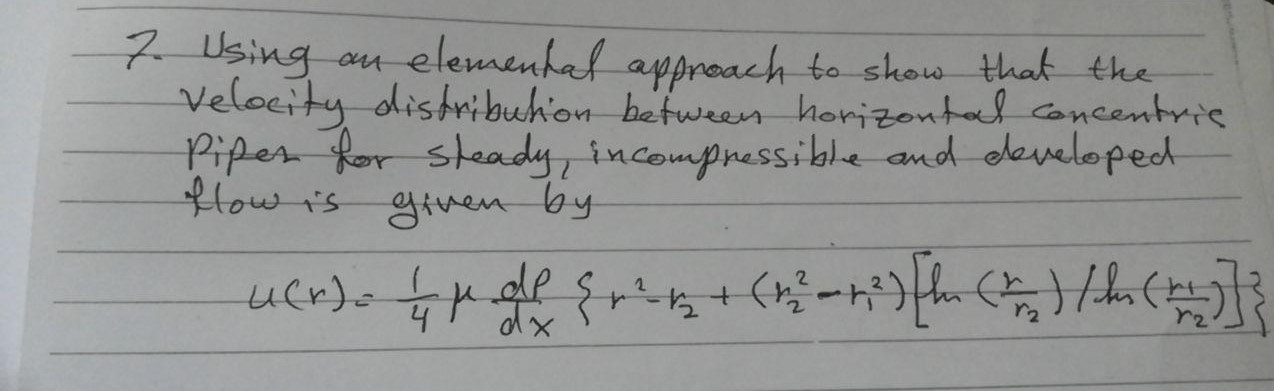 7. Using an elemental approach to show that the
velocity distribution between horizontal concentric
pipes for steady, incompressible and developed
flow is given by
u(r) = 1/4 μ dP/dx { r² - r₂ + (r₂² - r₁²) [ ln (r/r₂) / ln (r₁/r₂) ] }